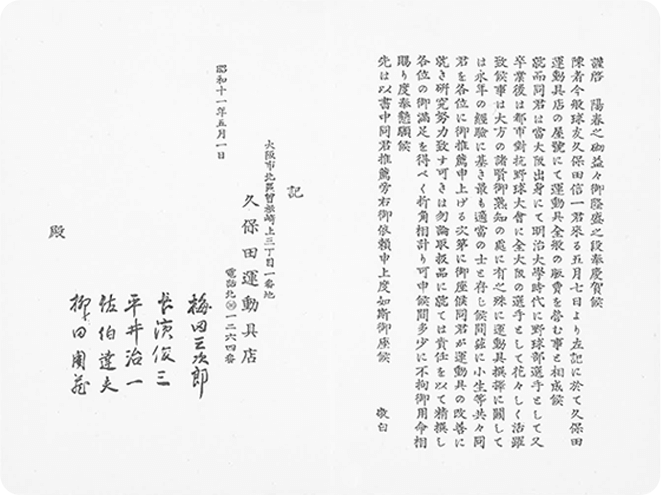 謹啓　陽春之砌益々御隆盛之段奉慶賀候
陳者今般球友久保田信一君來る五月七日より左記に於て久保田
運動具店の屋號にて運動具全般の販賣を營む事と相成候
就而同君は當大阪出身にて明治大學時代に野球部選手として又
卒業後は都市對抗野球大會に全大阪の選手として花々しく活躍
致候事は大方の諸賢御熟知の處に有之殊に運動具撰擇に關して
は永年の經驗に基き最も適當の士と存じ候間茲に小生等共々同
君を各位に御推薦申上げる次第に御座候同君が運動具の改善に
就き研究努力致す可きは勿論取扱品に就ては責任を以て精撰し
各位の御滿足を得べく折角相計り可申候間多少に不拘御用命相
賜り度奉懇願候
先は以書中同君推薦旁右御依頼申上度如斯御座候
敬白
記
大阪市北區曽根崎上三丁目一番地
久保田運動具店
電話北一二六四番
昭和十一年五月一日
梅田三次郎
長濱俊三
平井治一
佐伯達夫
柳田
殿